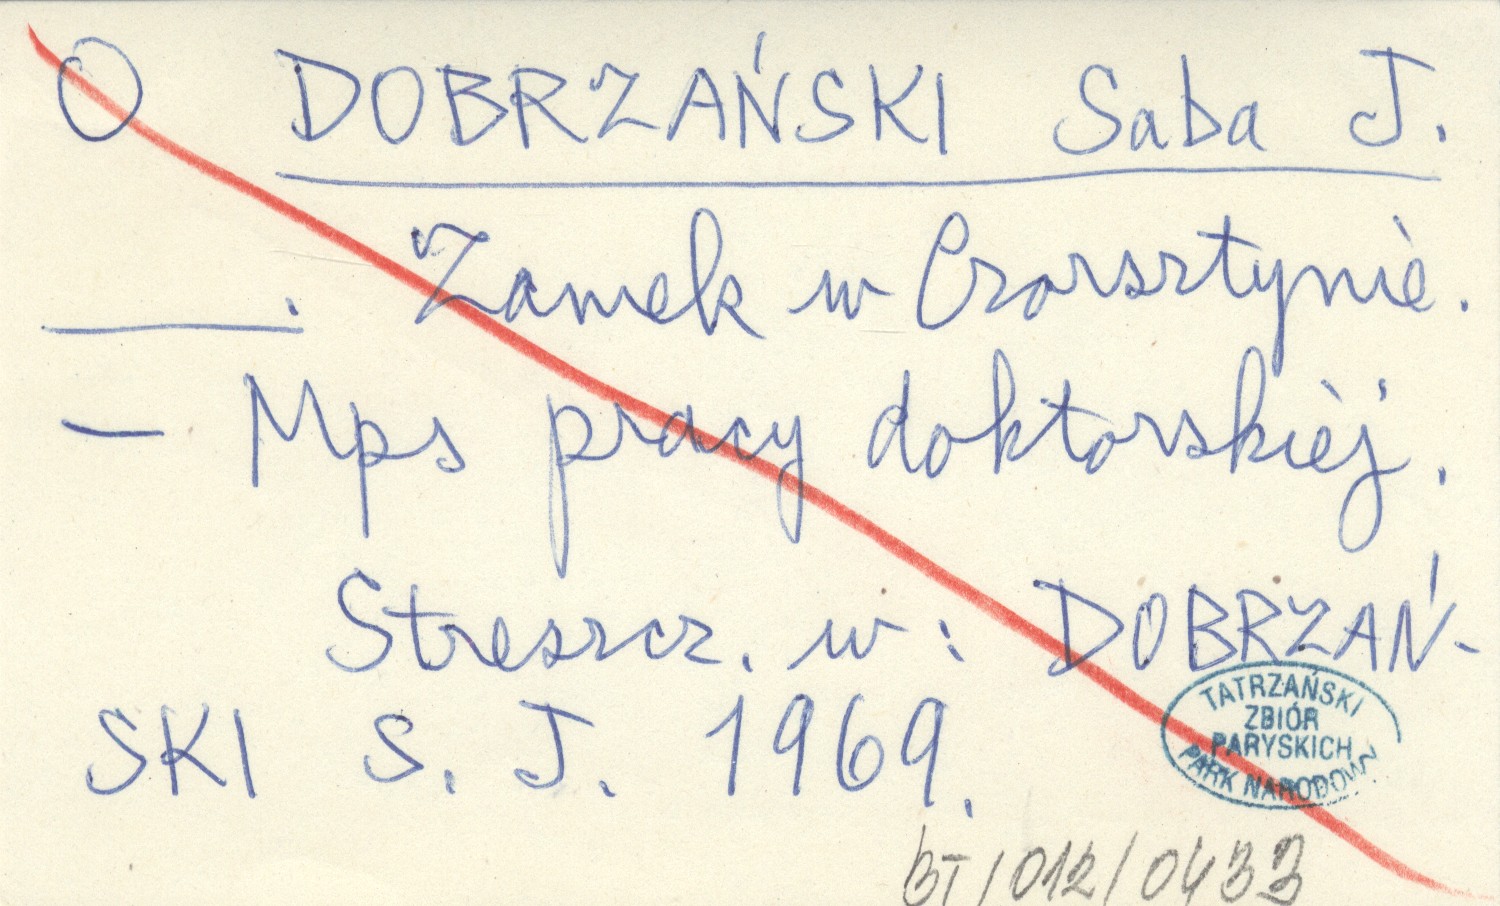 O DOBRZAŃSKI Saba J.
____. Zamek w Czorsztynie.
— Mps pracy doktorskiej.
Streszcz. w: DOBRZAŃ-
SKI S. J. 1969.
TATRZAŃSKI
ZBIÓR
PARYSKICH
PARK NARODOWY
BT/012/0433